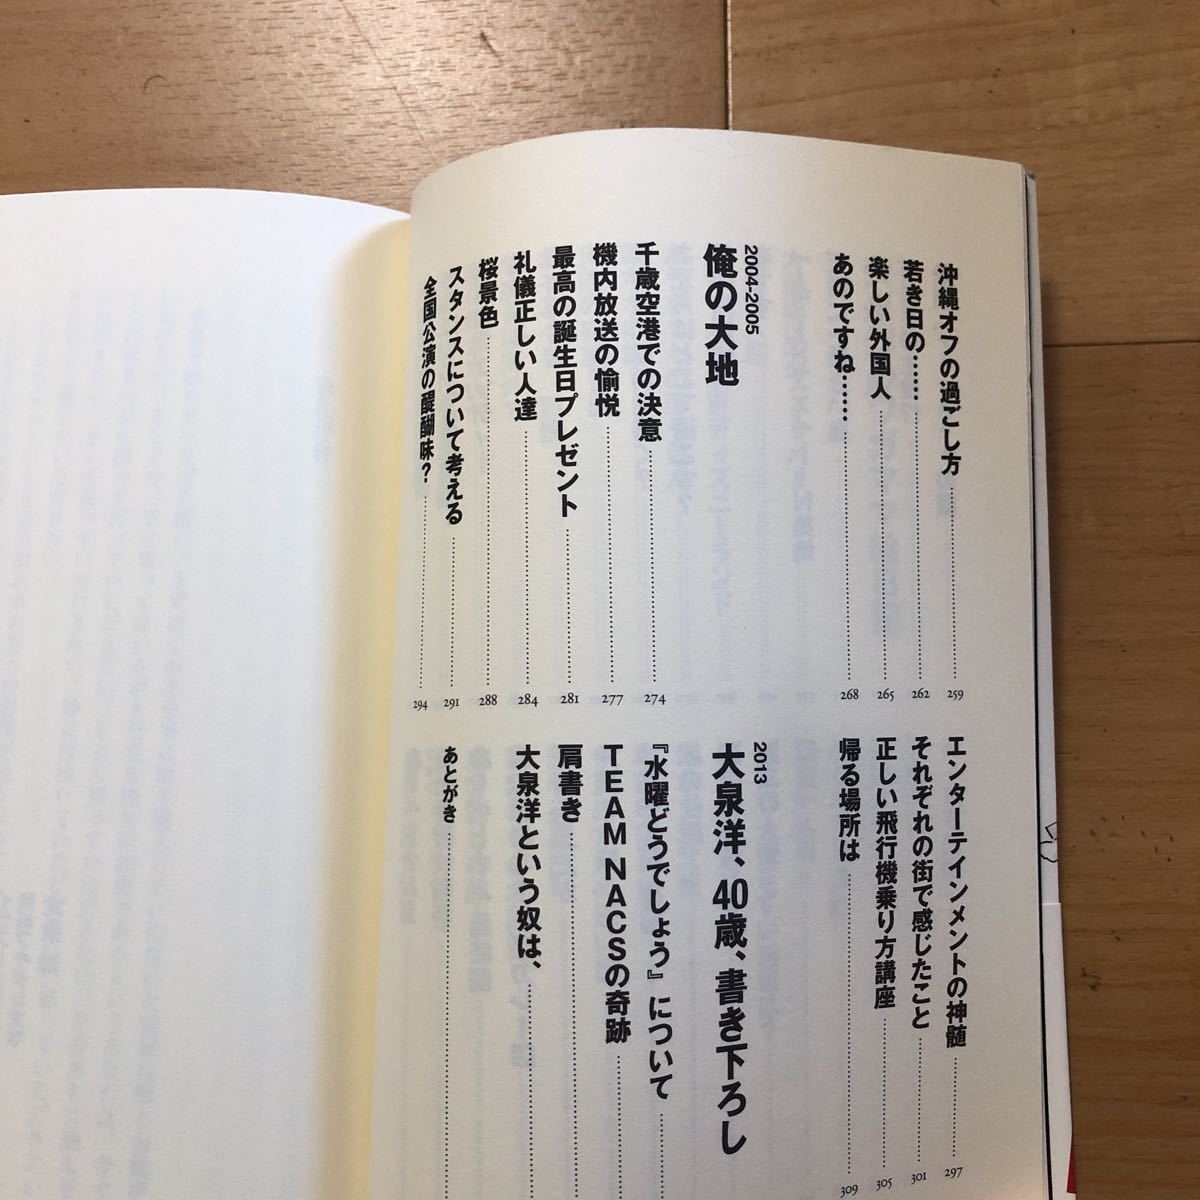 沖縄オフの過ごし方……259
若き日の……262
楽しい外国人……265
あのですね……268
2004-2005
俺の大地
千歳空港での決意……274
機内放送の愉悦……277
最高の誕生日プレゼント……281
礼儀正しい人達……284
桜景色……288
スタンスについて考える……291
全国公演の醍醐味?……294
エンターテインメントの神髄……297
それぞれの街で感じたこと……301
正しい飛行機乗り方講座……305
帰る場所は……309
2013
大泉洋、40歳、書き下ろし
『水曜どうでしょう』について
TEAM NACSの奇跡
肩書き
大泉洋という奴は、
あとがき